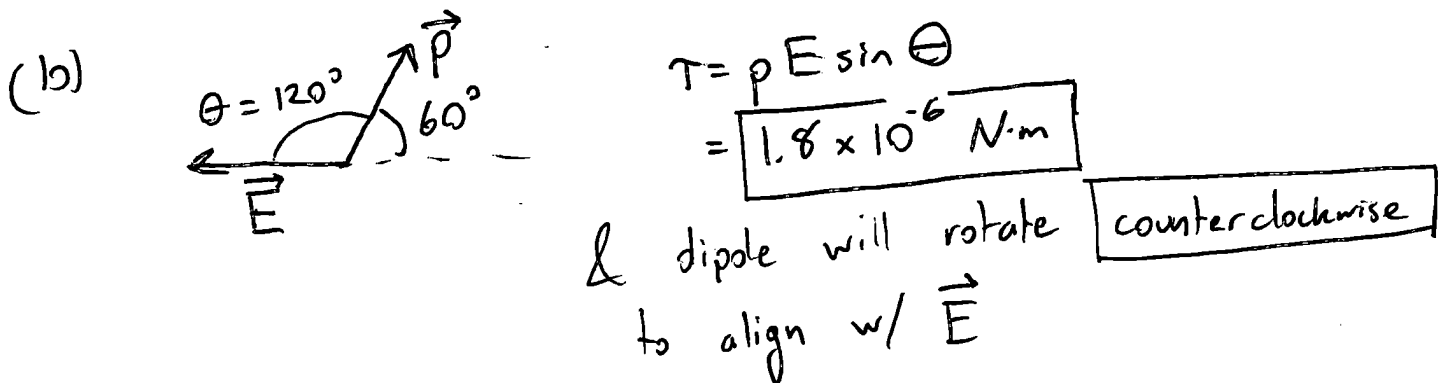 (b)
θ = 120°
P⃗
60°
E⃗
τ = p E sin θ
= 1.8 × 10⁻⁶ N·m
& dipole will rotate counterclockwise
to align w/ E⃗